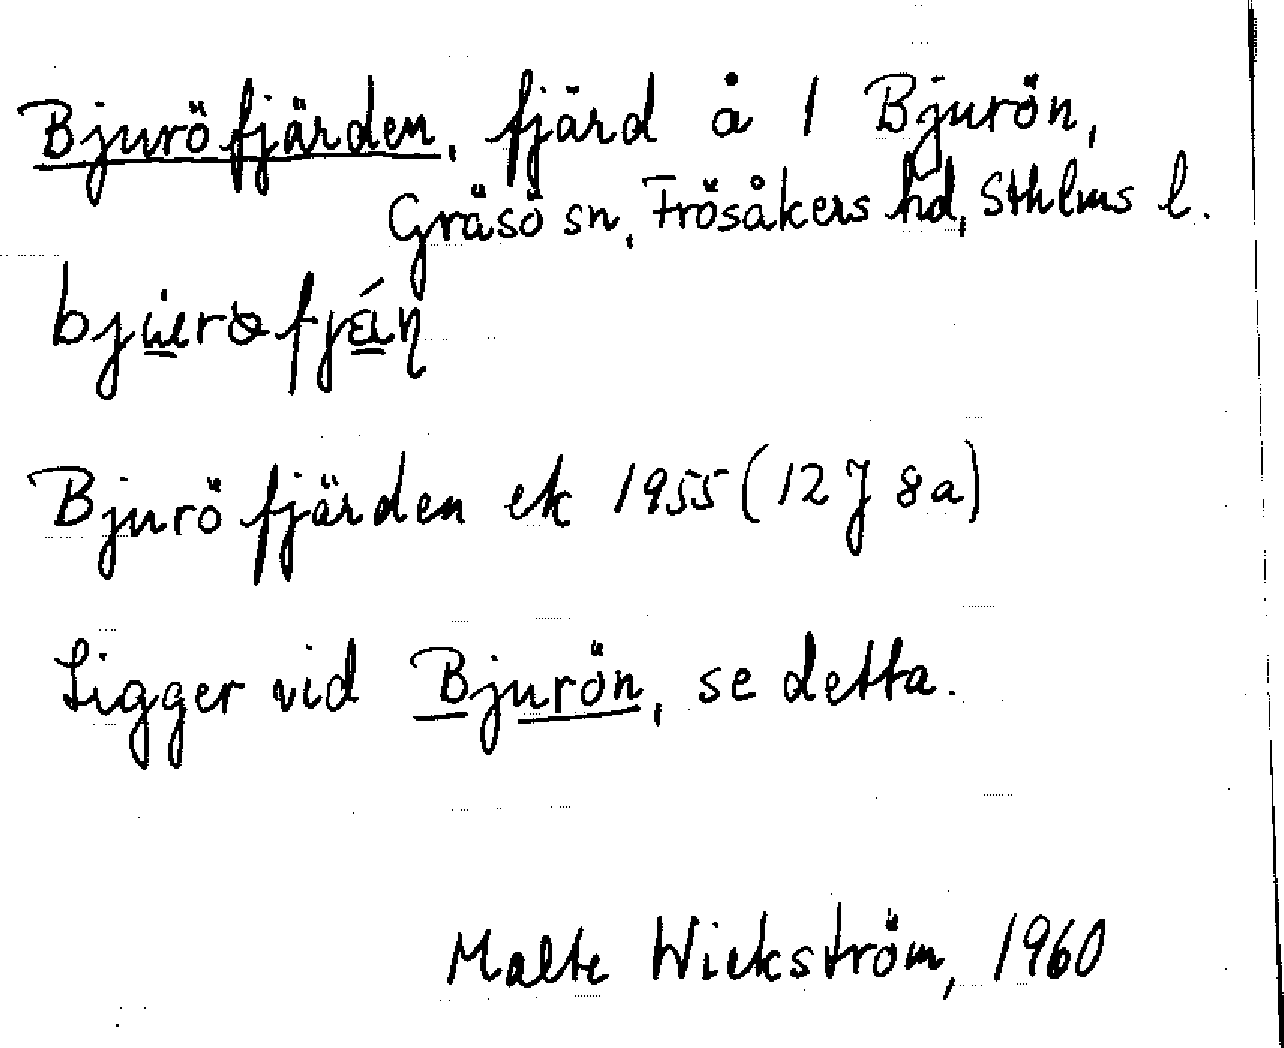 Bjuröfjärden, fjärd å 1 Bjurön,
Gräsö sn, Frösåkers hd, Sthlms l.
Bjuröfjärden ek 1955 (12 J 8a)
Ligger vid Bjurön, se detta.
Malte Wickström, 1960